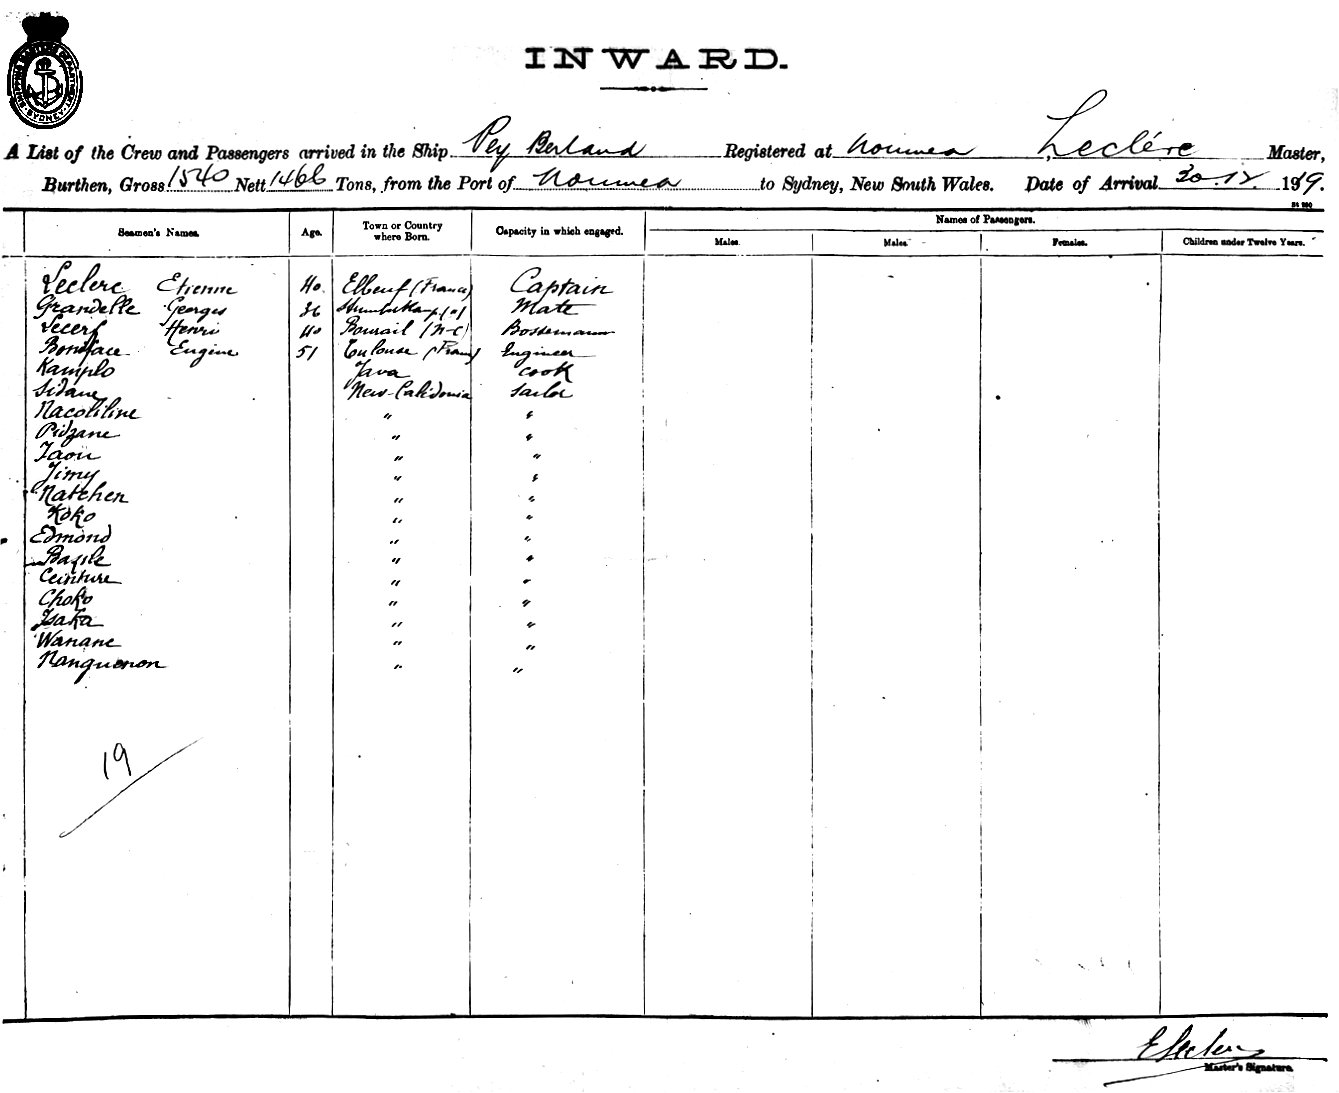 SHIPPING MASTER'S DEPARTMENT SYDNEY
INWARD.
A List of the Crew and Passengers arrived in the Ship Pey Berland Registered at Noumea Leclérc Master,
Burthen, Gross 1540 Nett 1466 Tons, from the Port of Noumea to Sydney, New South Wales. Date of Arrival 30.12. 1919.
Names of Passengers.
Seamen's Names. Age. Town or Country where Born. Capacity in which engaged. Males. Males. Females. Children under Twelve Years.
Leclerc Etienne 40 Elbeuf (France) Captain
Grandelle Georges 36 Mate
Lecerf Henri 40 Bourail (N-C) Bossemann
Boniface Eugine 51 Toulouse (Franc) Engineer
Kamplo Java Cook
Sidane New-Calidonia Sailor
Nacotiline " "
Pidzane " "
Taou " "
Jimy " "
Natchen " "
Koko " "
Edmond " "
" "
Ceinture " "
Choko " "
Isaka " "
Wanane " "
Nanguenon " "
19
E Leclerc
Master's Signature.